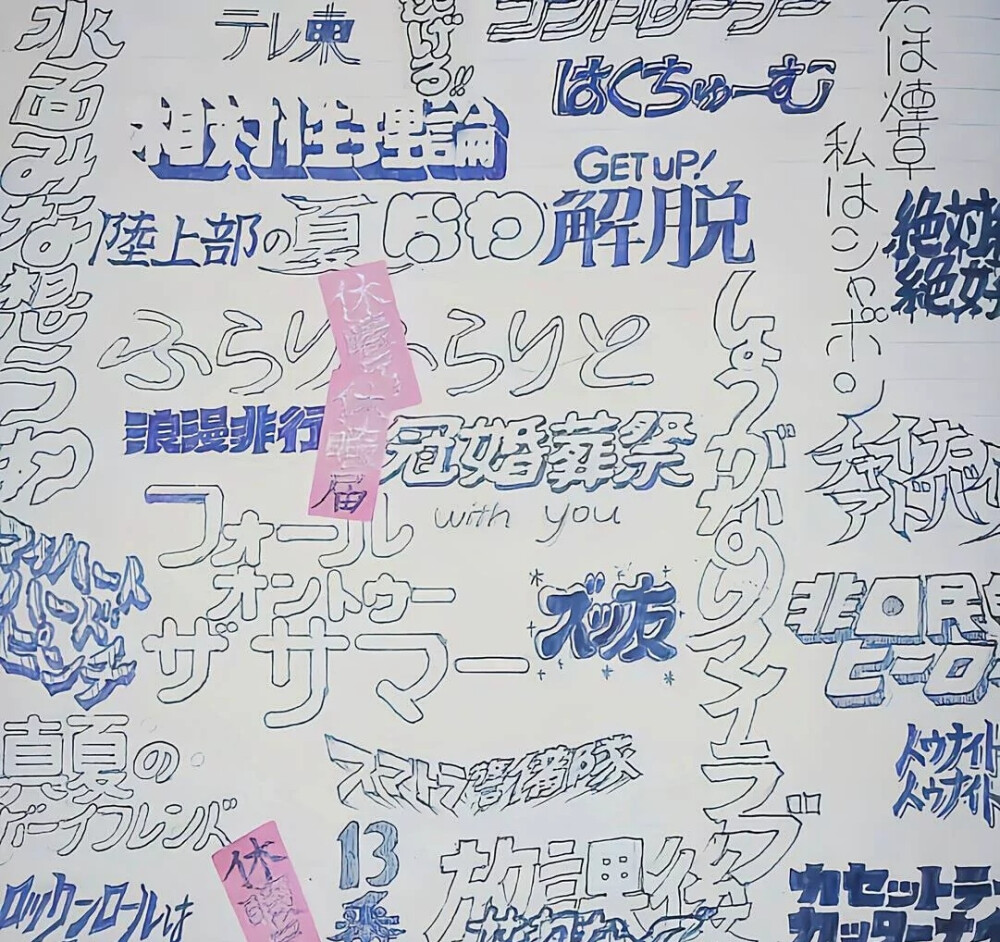 水面みな想うわ
テレ東
げる!!
コントローラー
はくちゅーむ
たは煙草
私はシャボン
相対性理論
GET UP!
解脱
陸上部の夏
なわ
絶対
絶好
ふらりふらりと
休
休
届
浪漫非行
冠婚葬祭
with you
しょうがないマイラブ
チャイナ
アドバ
フォール
オントゥー
ザサマー
ズッ友
ピンチ
非国民
ヒーロー
真夏の
ボーイフレンド
スマトラ警備隊
トゥナイト
トゥナイト
13
番
放課後
休
ロックンロールは
カセットテ
カッターナイ